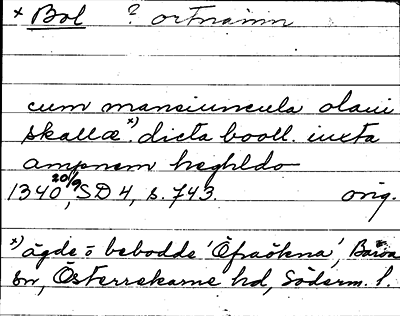 * Bol ? ortnamn
cum mansiuncula olaui
skallæ *) dicta booll. iuxta
ampnem heghldo
1340 20/9, SD 4, s. 743. orig.
*) ägde o bebodde 'Öfraökna',
sn, Österrekarne hd, Söderm. l.